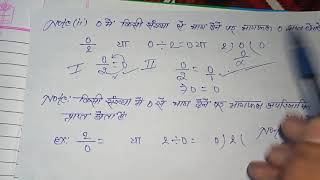 Note (ii) 0 में किसी संख्या से भाग देने पर भागफल 0 प्राप्त
0/2 या 0÷2=0 या 2)0(0
I 0/2 = 0 II 0/2 = 0/1
⇒ 0 = 0
Note:- किसी संख्या में 0 से भाग देने पर भागफल अपरिभाषित
प्राप्त होता है
ex: 2/0 = या 2÷0 = 0)2(